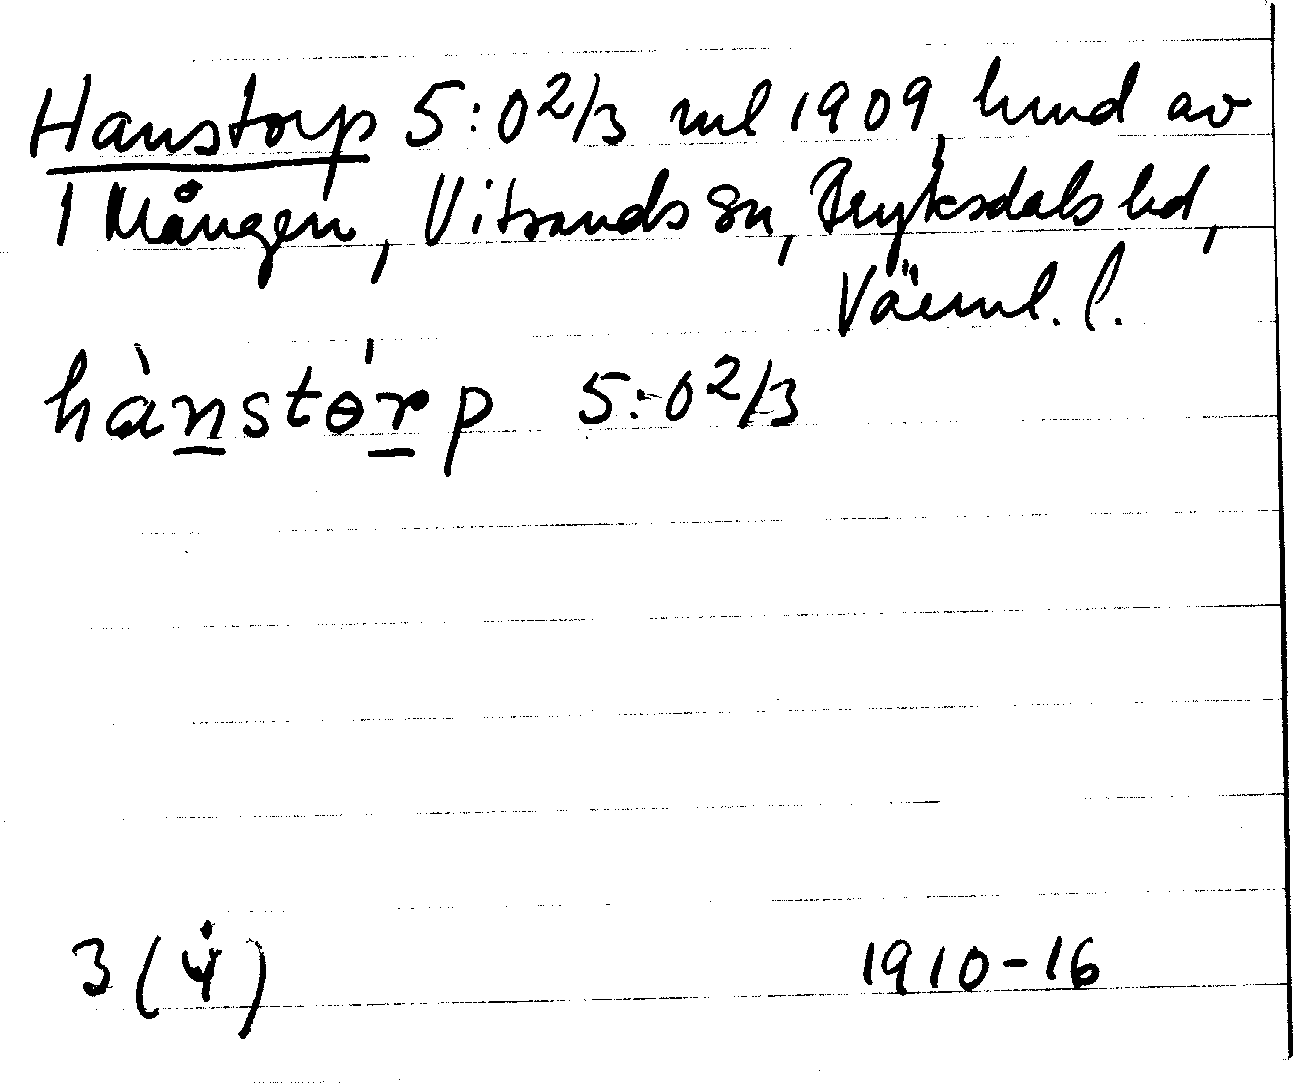 Hanstorp 5:0 2/3 ml 1909, hmd av
1 Mången, Vitsands sn, Fryksdals hd,
Värml. l.
hànstɵ́rp 5:0 2/3
3 (4) 1910-16